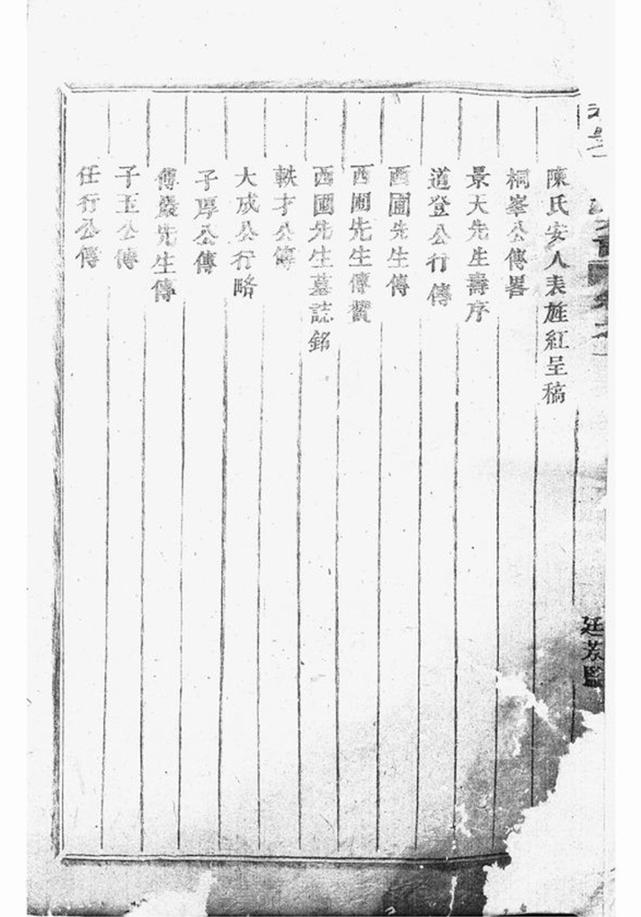 陳氏安人表旌紅呈稿
桐峯公傳畧
景天先生壽序
道登公行傳
西圃先生傳
西圃先生傳贊
西圃先生墓誌銘
軼才公傳
大成公行略
子厚公傳
傅巖先生傳
子玉公傳
任行公傳
廷芳監